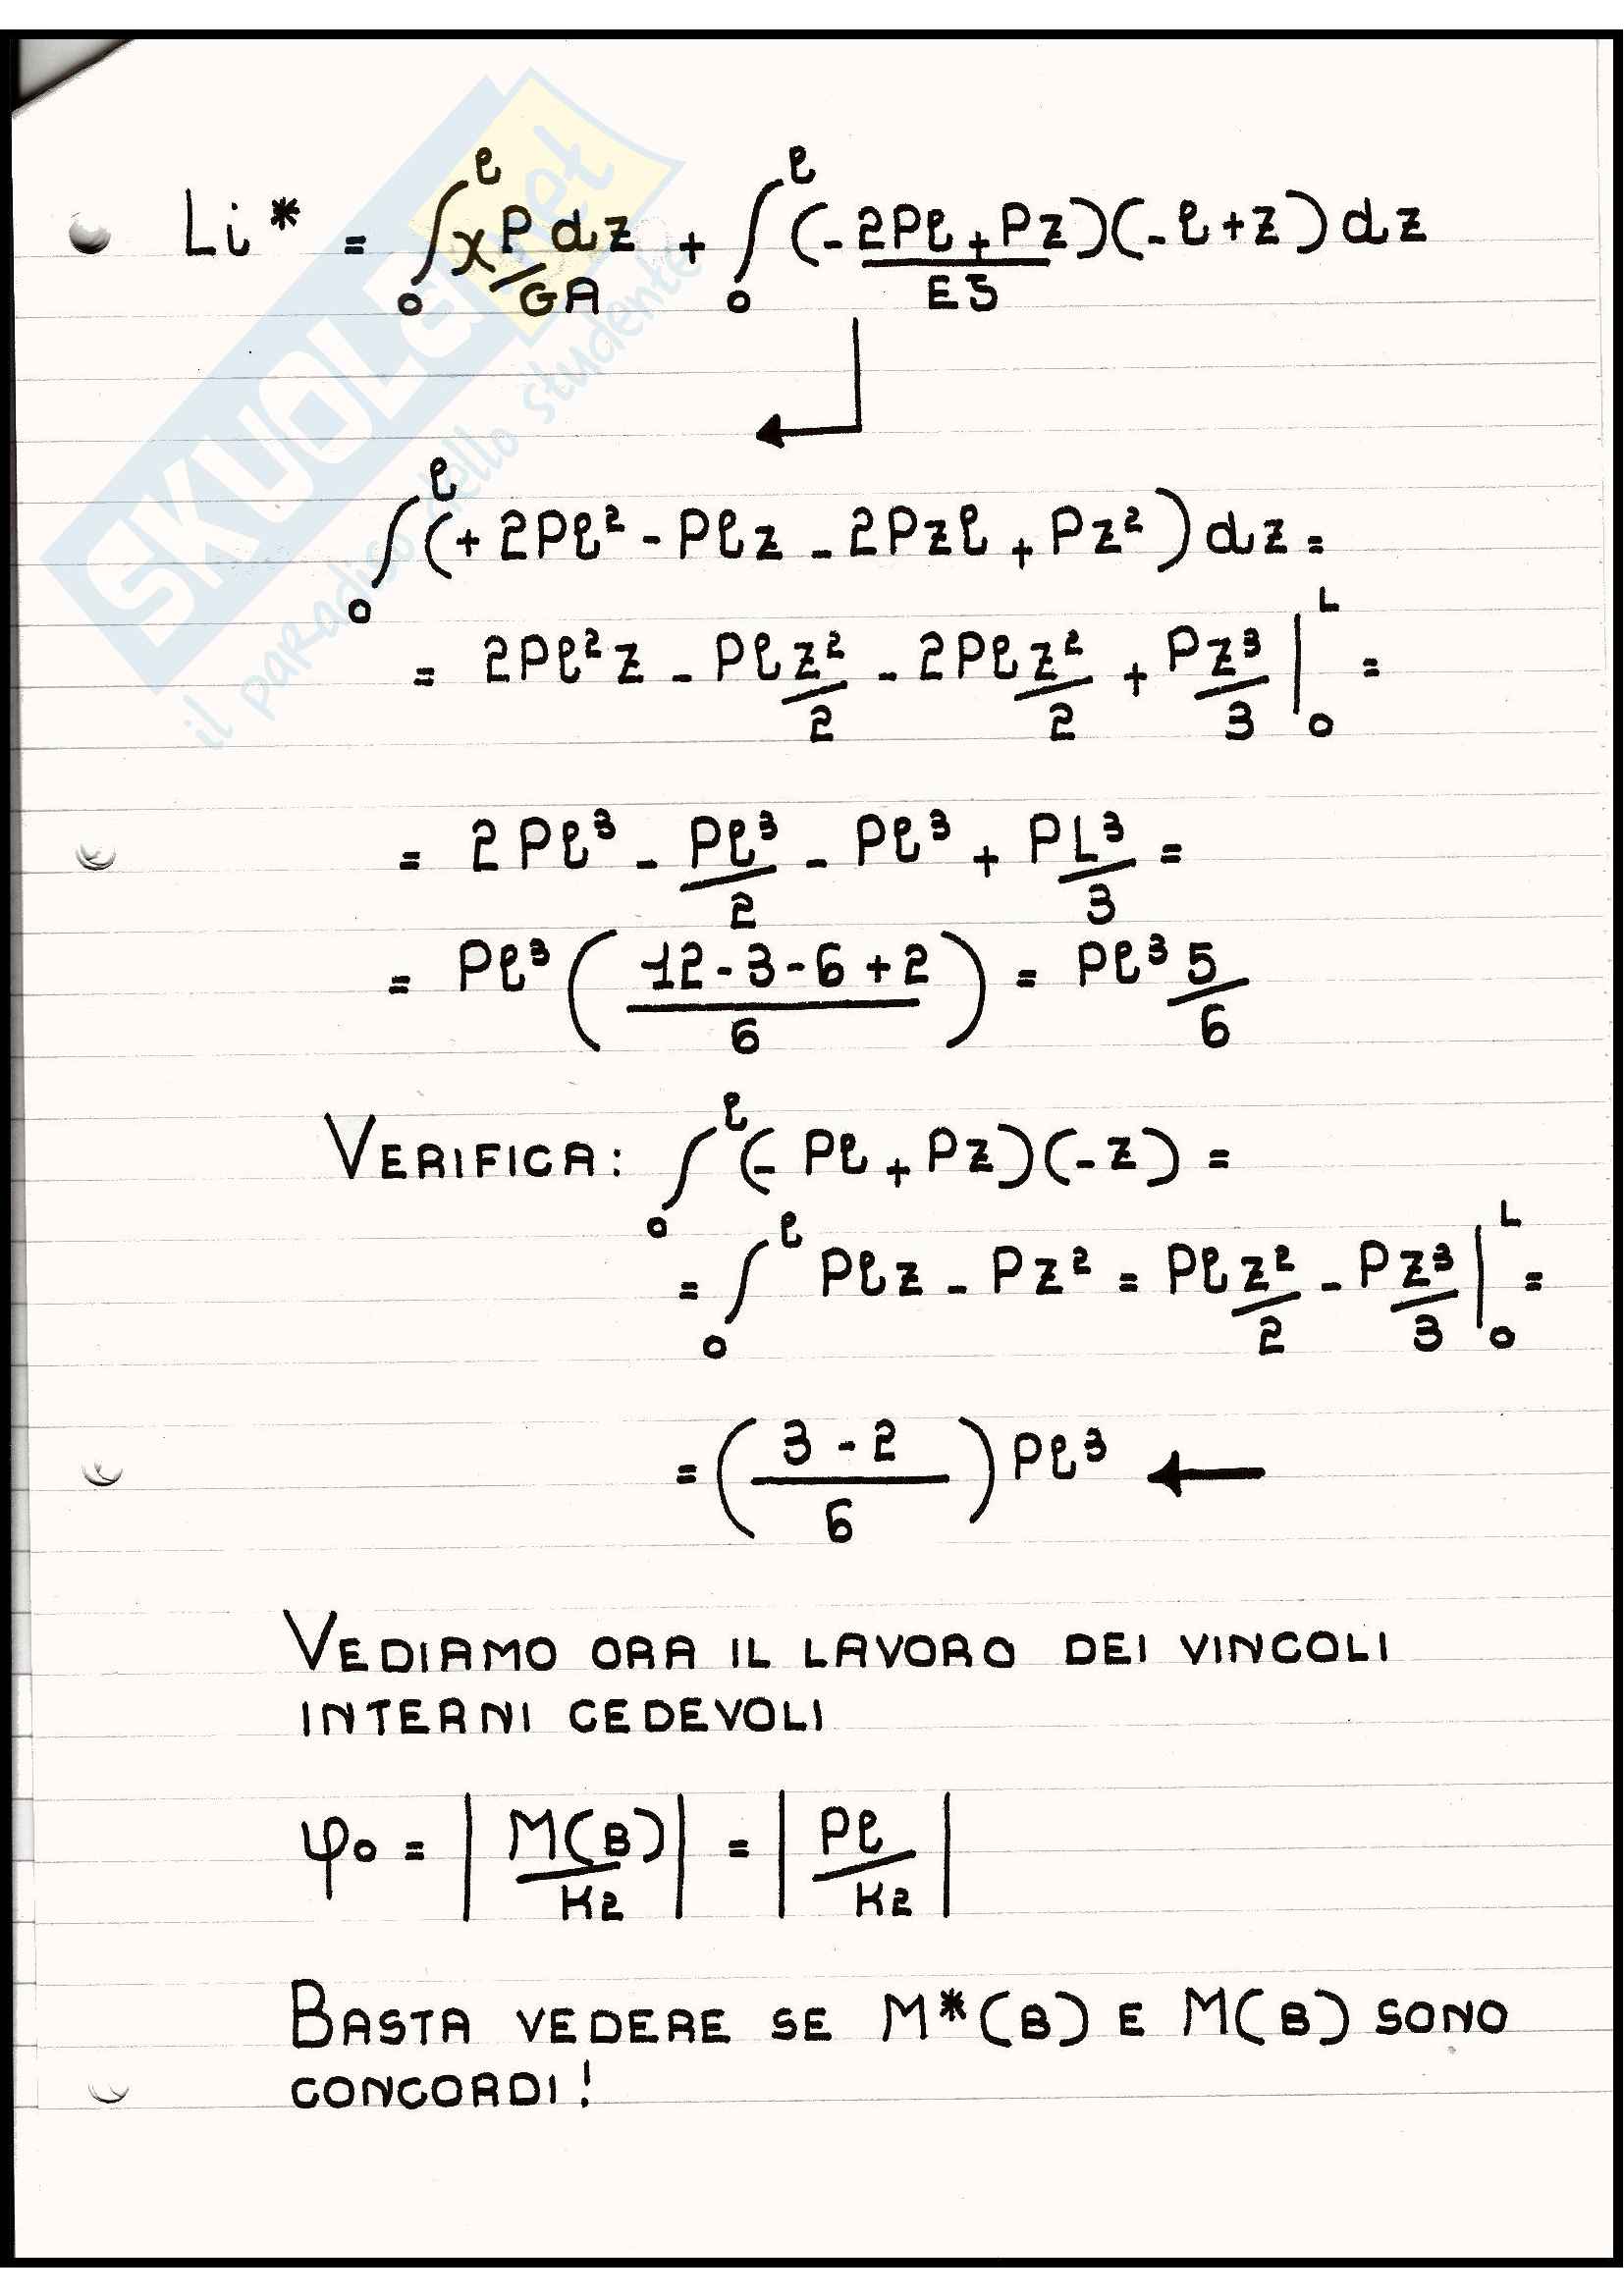 Li* = ∫₀^ℓ χ P/GA dz + ∫₀^ℓ (-2Pℓ+Pz)/EJ (-ℓ+z) dz
∫₀^ℓ (+2Pℓ² - Pℓz - 2Pzℓ + Pz²) dz =
= 2Pℓ²z - Pℓ z²/2 - 2Pℓ z²/2 + P z³/3 |₀^L =
= 2Pℓ³ - Pℓ³/2 - Pℓ³ + PL³/3 =
= Pℓ³ ( (12-3-6+2)/6 ) = Pℓ³ 5/6
VERIFICA: ∫₀^ℓ (-Pℓ+Pz)(-z) =
= ∫₀^ℓ Pℓz - Pz² = Pℓ z²/2 - P z³/3 |₀^L =
= ( (3-2)/6 ) Pℓ³ ←
VEDIAMO ORA IL LAVORO DEI VINCOLI
INTERNI CEDEVOLI
φ₀ = | M(B)/K2 | = | Pℓ/K2 |
BASTA VEDERE SE M*(B) E M(B) SONO
CONCORDI!
SKUOLA.net
il paradiso dello studente